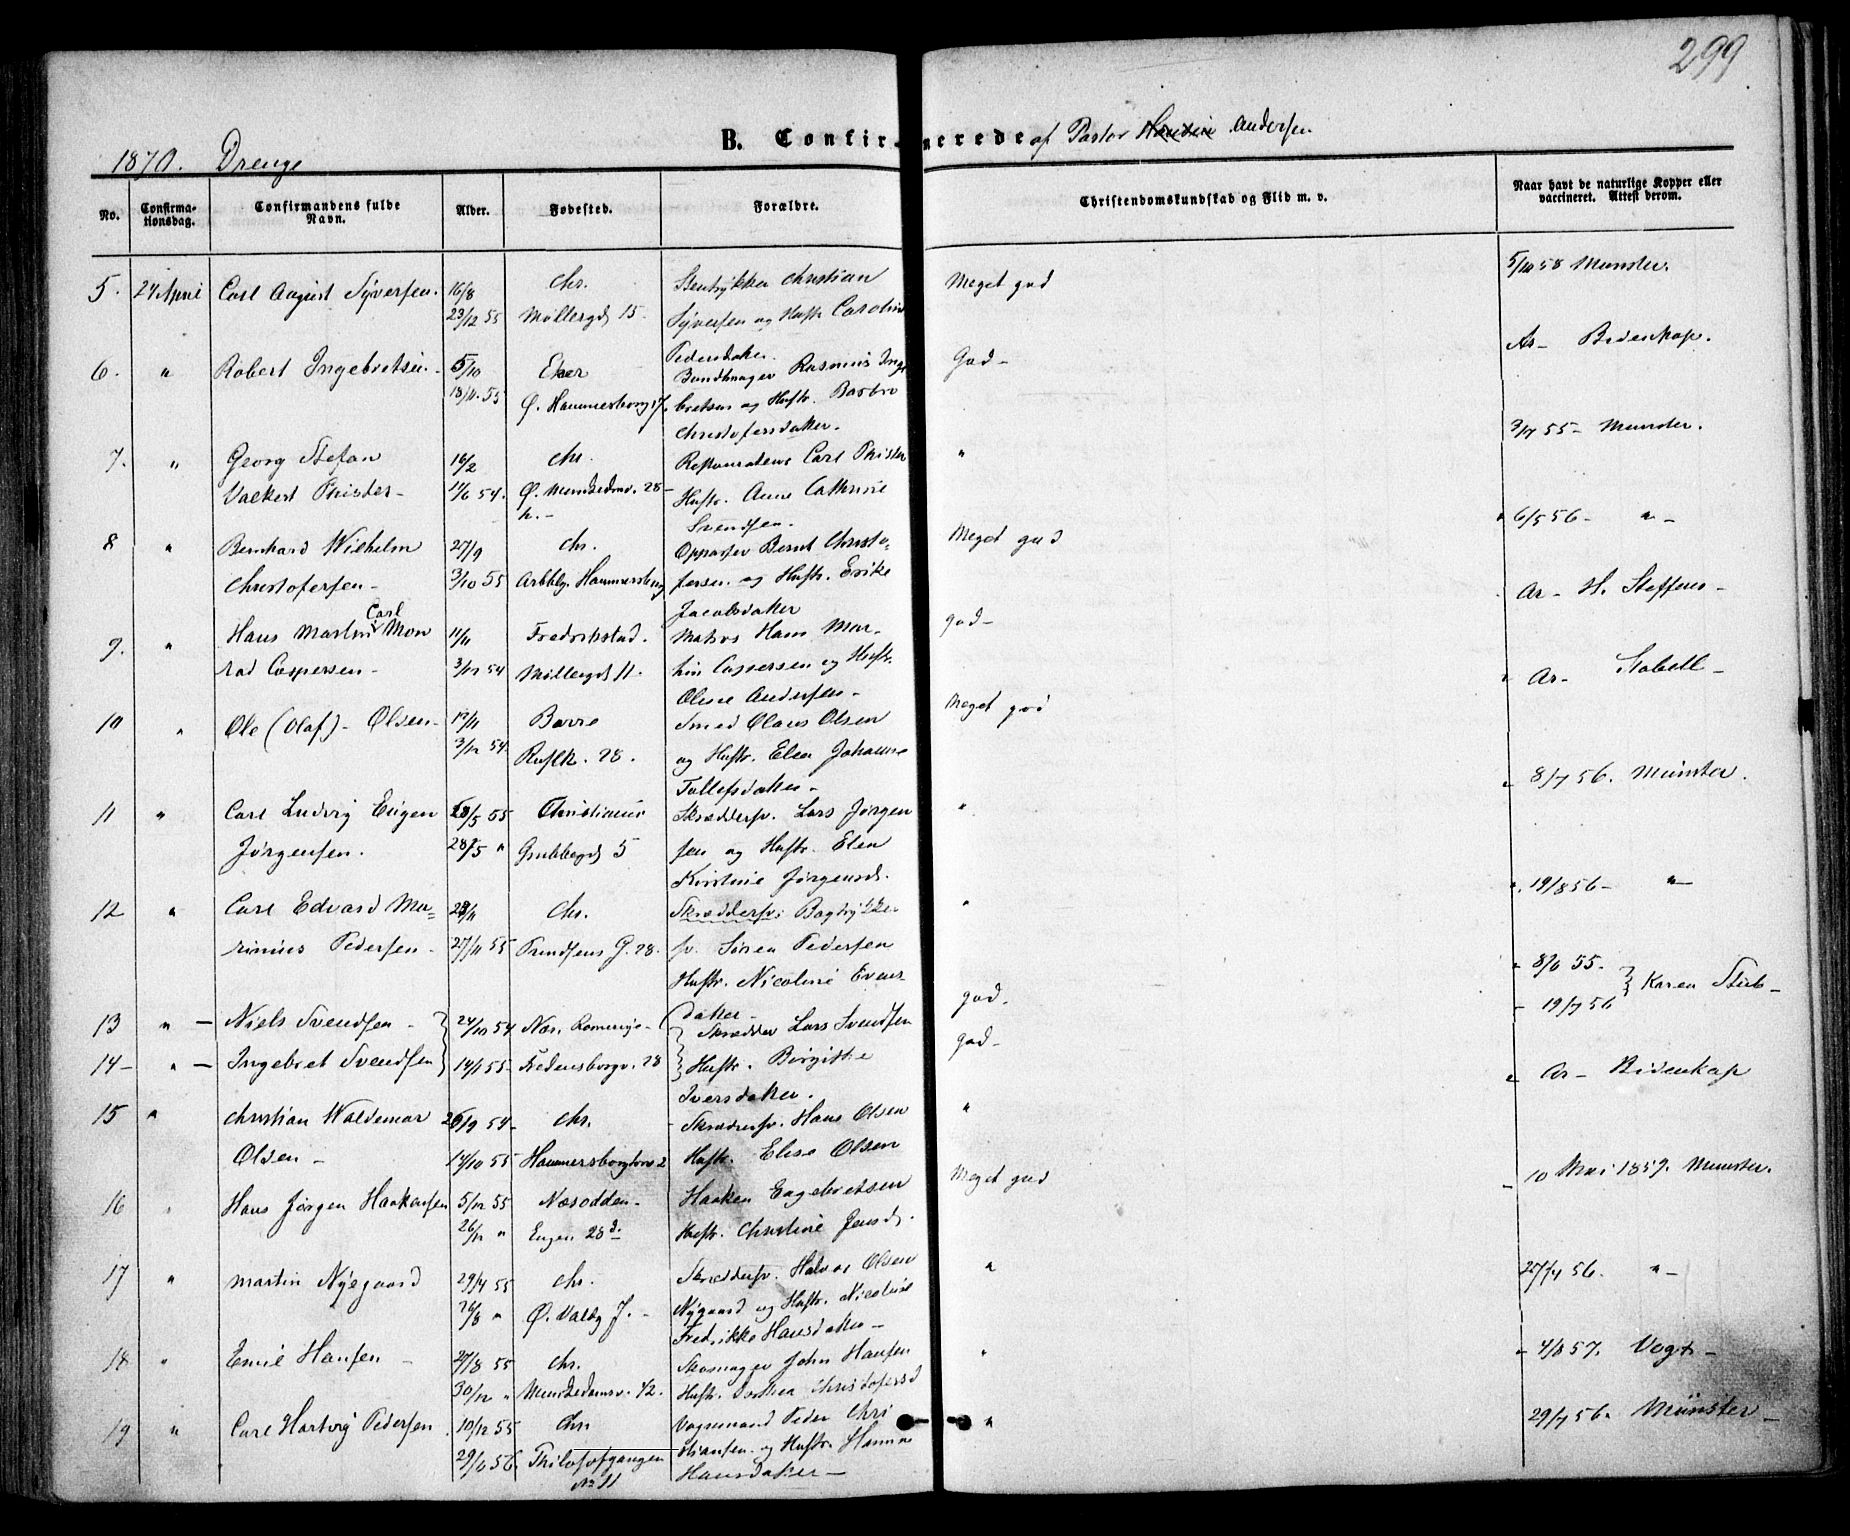 299
B. Confirmerede af Pastor Andersen
1870. Drenge
No. Confirmationsdag. Confirmandens fulde Navn. Alder. Fødested. Forældre. Christendomskundskab og Flid m. v. Naar havt de naturlige Kopper eller vaccineret. Attest derom.
5. 24 April Carl August Syversen. 16/8 Chr. Christian Meget god 5/10 58 Munster.
23/12 55 Møllergd 15. Syversen og Hustr. Caroline
Pedersdatter.
6. " Robert Ingebretsen 5/10 Eker Rasmus Inge God Ar- Bidenkap.
18/11 55 Ø. Hammersborg 17. bretsen og Hustr. Barbro
Christofersdatter.
7. " Georg Stefan 16/2 Chr. Carl Thister " 3/7 55 Munster.
Thister 11/6 54. Ø. Munkedmv. 28 Hustr. Anne Cathrine
h. Svendsen.
8 " Bernhard Wilhelm 27/9 Chr. Oppasser Bernt Christo- Meget god 6/5 56 "
Christofersen 3/10 55 Hammersborg fersen og Hustr. Erike
Jacobsdatter
9. " Hans Martin Carl Mon 11/11 Fredrikstad. Matros Hans Mar- god Ar- H. Steffens
rad Caspersen 3/12 54 Møllergd 11. tin Caspersen og Hustr.
Oline Andersen
10 " Ole (Olaf) Olsen 12/11 Borre Smed Claus Olsen Meget god Ar- Stabell
3/12 54 28. og Hustr. Elen Johanne
Tollefsdatter
11 " Carl Ludvig Eugen 55 Christiania Skrædersv. Lars Jørgen " 8/7 56. Münster.
Jørgensen. 28/5 " Grubbegd 5 sen og Hustr. Elen
Kirstine Jørgensd.
12 " Carl Edvard Ma- Chr. Skræddersv. Bogtrykker " 19/8 56 "
rinius Pedersen 27/11 55 28. sv. Søren Pedersen
Hustr. Nicoline Evens
datter
13 " Niels Svendsen 24/10 54 Næs, Romerige Skrædder Lars Svendsen god. 8/6 55. Karen Stub
14 " Ingebret Svendsen 14/1 55 Fredensborgv. 28 Hustr. Birgitte god 19/7 56
Iversdatter.
15 " Christian Waldemar 54 Chr. Skræddersv. Hans Olsen " Ar- Bidenkap
Olsen 14/10 55 Hammersborgtorv 2 Hustr. Elise Olsen
16 " Hans Jørgen Haakensen 5/12 55 Næsodden Haaken Engebretsen Meget god 10 Mai 1857. Munster.
26/12 " Engen 28 d. Hustr. Christine Jensd.
17 " Martin Nyegaard 29/4 55 Chr. Skræddersv. Halvor Olsen " 27/4 56. "
26/8 " Ø. Valby 7. Nygaard og Hustr. Nicoline
Fredrikke Hansdatter
18 " Emil Hansen 27/8 55 Chr. Skomager John Hansen " 4/8 57. Vogt
30/12 " Munkedamsv. 42. Hustr. Dorthea Christofersd
19 " Carl Hartvig Pedersen 10/12 55 Chr. Vognmand Peder Chri " 29/7 56. Münster
29/1 56 Thilosofgangen stiansen og Hustr. Hanna
No 11 Hansdatter